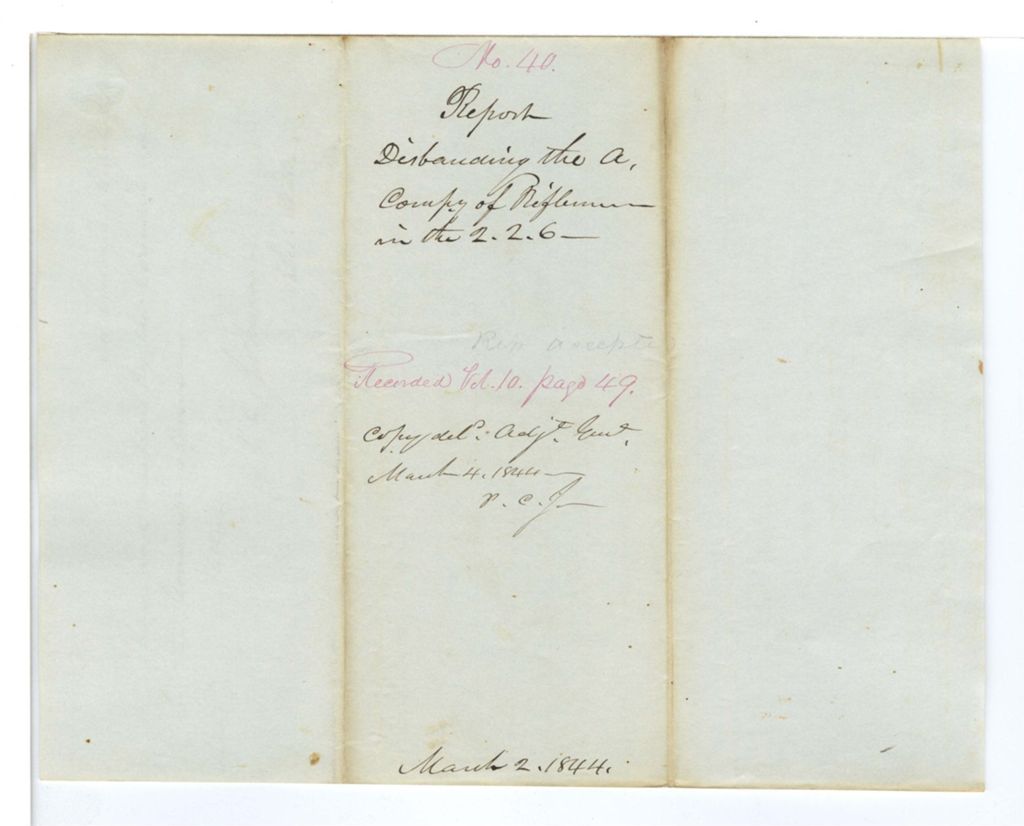 No. 40.
Report
Disbanding the A.
Compy of Riflemen
in the 2. 2. 6 —
Rep accepte
Recorded Vol. 10. page 49.
Copy deld. Adjt. Genl.
March 4. 1844 —
P. C. J —
March 2. 1844.